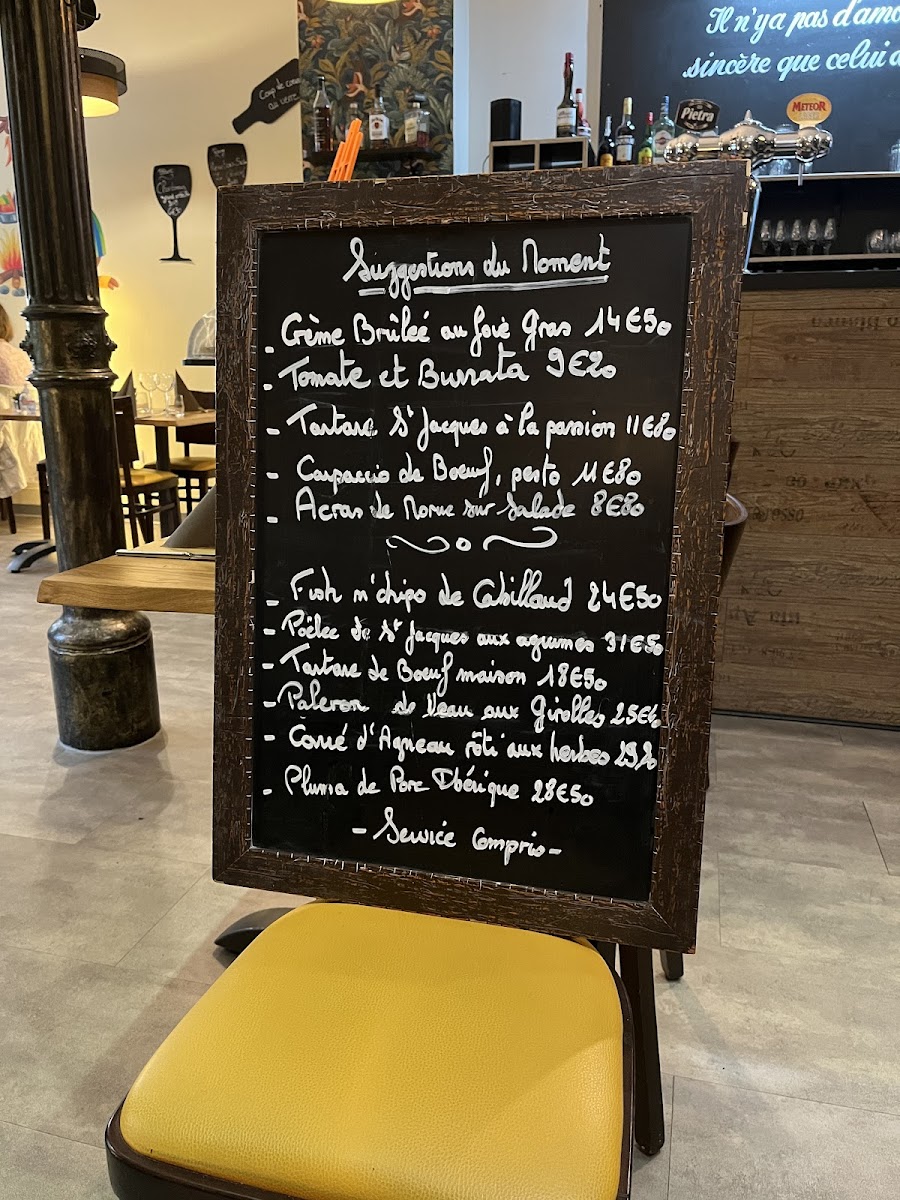 Il n'y a pas d'amo
sincère que celui d
Coup de coeur
au verre
Pietra
METEOR
Suggestions du Moment
- Crème Brûleé au foie gras 14€50
- Tomate et Burrata 9€20
- Tartare St Jacques à la passion 11€80
- Carpaccio de Boeuf, pesto 11€80
- Acras de Morue sur Salade 8€80
- Fish n'chips de Cabillaud 24€50
- Poêlée de St Jacques aux agrumes 31€50
- Tartare de Boeuf maison 18€50
- Paleron de Veau aux Girolles
- Carré d'Agneau rôti aux herbes
- Pluma de Porc Ibérique 28€50
- Service Compris -